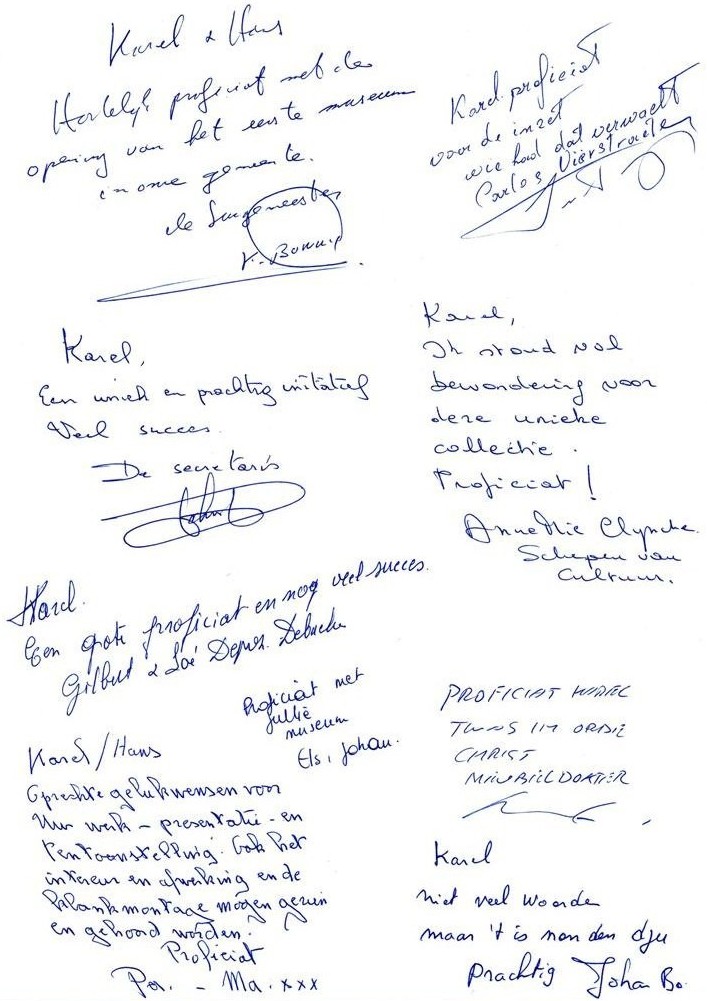 Karel & Hans
Hartelijk proficiat met de
opening van het eerste museum
in onze gemeente.
de burgemeester
Karel proficiat
voor de inzet
wie had dat verwacht
Carlos Vierstraete
Karel,
Een uniek en prachtig initiatief
Veel succes
De secretaris
Karel,
Ik stond vol
bewondering voor
deze unieke
collectie.
Proficiat!
AnneMie Clyncke
Schepen van
Cultuur.
Karel.
Een grote proficiat en nog veel succes.
Gilbert &
Proficiat met
jullie
museum
Els, Johan.
Karel/Hans
Oprechte gelukwensen voor
Uw werk - presentatie - en
tentoonstelling. Ook het
interieur en afwerking en de
klankmontage mogen gezien
en gehoord worden.
Proficiat
Pa. - Ma. xxx
PROFICIAT KAREL
TWAS IN ORDIE
CHRIST
Karel
niet veel woorden
maar 't is non den dju
Prachtig Johan Bo.